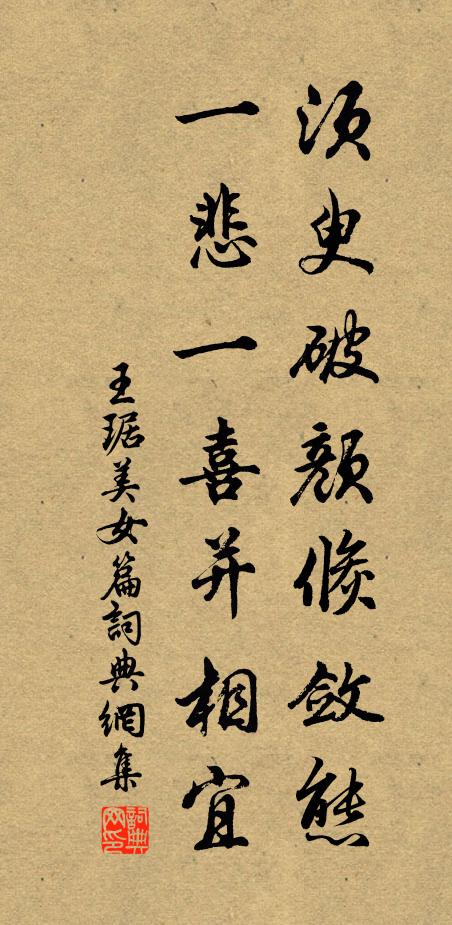 須臾破顏倏斂態
一悲一喜并相宜
王琚美女篇詞典網集
詞典網印